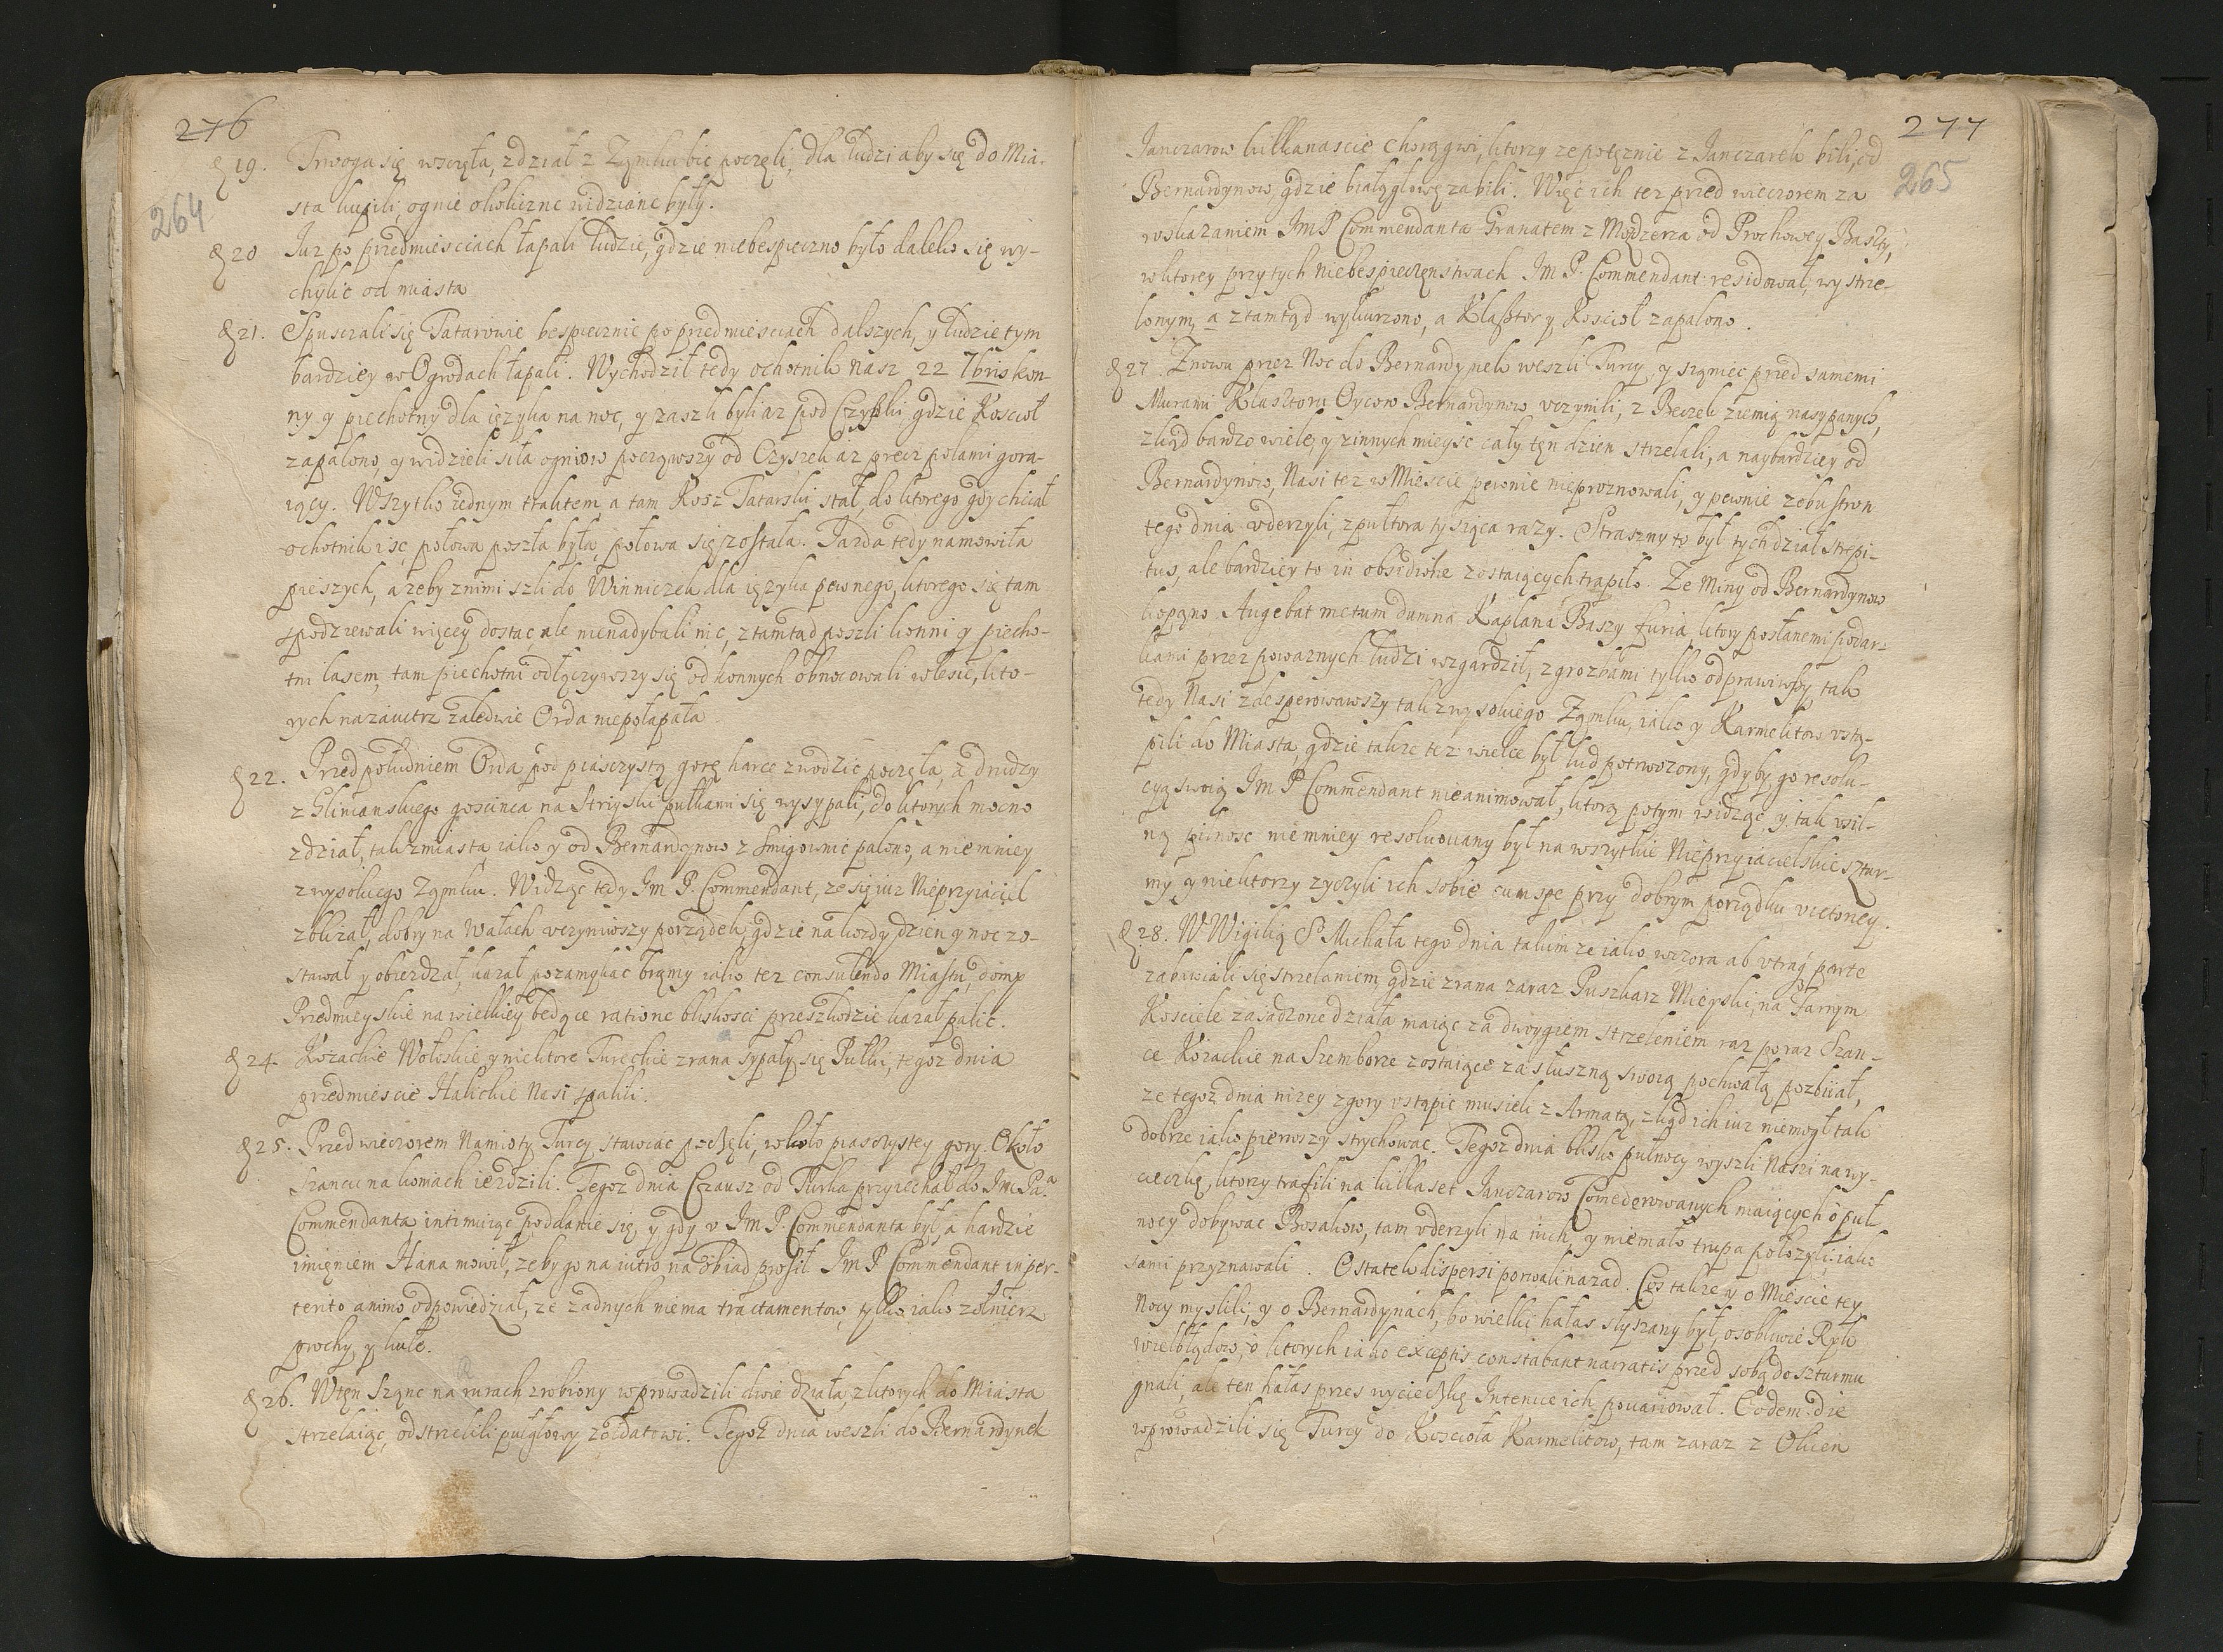 276
264
§ 19. Trwoga się wszczęła, z dział z Zamku bić poczęli, dla ludzi aby się do Mia-
sta kupili, ognie okoliczne widziane były.
§ 20 Iuz po przedmiesciach łapali ludzie, gdzie niebespieczno było daleko się wy-
chylic od miasta
§ 21. Spuszczali się Tatarowie bespiecznie po przedmiesciach dalszych, y ludzie tym
bardziey w Ogrodach łapali. Wychodził tedy ochotnik nasz 22 7bris kon-
ny y piechotny dla ięzyka na noc, y zaszli byli az pod Czyszki, gdzie Koscioł
zapalono, y widzieli siła ogniow począwszy od Czyszek az przez polami gora-
iący. Wszytko iednym traktem, a tam Kosz Tatarski stał, do ktorego gdy chciał
ochotnik isc, połowa poszła była, połowa się została. Iazda tedy namowiła
pieszych, azeby z nimi szli do Winniczek dla ięzyka pewnego, ktorego się tam
spodziewali więcey dostac, ale nienadybali nic, z tamtąd poszli konni y piecho-
tni lasem, tam piechotni odłączywszy się od konnych obnocowali w lesie, kto-
rych nazaiutrz zaledwie Orda niepołapała
§ 22. Przed południem Orda pod piasczystą gorę harce zwodzic poczęła, a drudzy
z Glinianskiego goscinca na Stryiski pułkami się wysypali, do ktorych mocno
z dział, tak z miasta iako y od Bernardynow z smigownic palono, a niemniey
z wysokiego Zamku. Widząc tedy Im P. Commendant, ze się iuz Nieprzyiaciel
zblizał, dobry na Wałach uczyniwszy porządek, gdzie na kozdy dzien y noc zo-
stawał y obiezdzał, kazał pozamykac bramy iako tez consulendo Miastu, domy
Przedmieyskie na wielkiey będące ratione bliskosci przeszkodzie kazał palic.
§ 24. Kozackie Wołoskie, y niektore Tureckie z rana sypały się Pułki, tegoz dnia
przedmiescie Halickie Nasi spalili.
§ 25. Przed wieczorem Namioty Turcy stawiac poczęli, w koło piasczystey gory. Około
szancu na koniach iezdzili. Tegoz dnia Czausz od Turka przyiechał do Im Pa.
Commendanta, intimuiąc poddanie się, y gdy v Im P. Commendanta był, a hardzie
imieniem Hana mowił, zeby go na iutro na obiad prosił. Im P Commendant inper-
terito animo odpowiedział, ze zadnych niema tractamentow, tylko iako zołnierz
prochy y kule.
§ 26. W ten szanc na murach zrobiony wprowadzili dwie działa, z ktorych do Miasta
strzelaiąc, odstrzelili puł głowy zołdatowi. Tegoz dnia weszli do Bernardynek
277
265
Ianczarow kilkanascie chorągwi, ktorzy ze potęznie z Ianczarek bili, od
Bernardynow, gdzie białągłowę zabili. Więc ich tez przed wieczorem za
wskazaniem Im P Commendanta Granatem z Mozdzerza od Prochowey Baszty,
w ktorey przy tych niebespieczenstwach Im P. Commendant residował, wystrze-
lonym, a ztamtąd wykurzono, a Klasztor y Koscioł zapalono.
§ 27. Znowu przez Noc do Bernardynek weszli Turcy, y szaniec przed samemi
Murami Klasztoru Oycow Bernardynow uczynili, z Beczek ziemią nasypanych,
zkąd bardzo wiele, y z innych mieysc cały ten dzien strzelali, a naybardziey od
Bernardynow, Nasi tez w Miescie pewnie nieproznowali, y pewnie z obu stron
tego dnia vderzyli, z pułtora tysiąca razy. Straszny to był tych dział strepi-
tus, ale bardziey to in obsidione zostaiących trapiło. Ze Miny od Bernardynow
kopano. Augebat metum damna Kaplana Baszy furia, ktory posłanemi podar-
kami przez powaznych ludzi wzgardził, z grozbami tylko odprawiwszy, tak
tedy Nasi zdesperowawszy tak z wysokiego Zamku, iako y Karmelitow vstą-
pili do Miasta, gdzie takze tez wielce był lud potrwozony, gdyby go resolu-
cyą swoią Im P Commendant nieanimował, ktorą potym widząc, y tak vsil-
ną pilnosc niemniey resolwowany był na wszytkie Nieprzyiacielskie sztur-
my, y niektorzy zyczyli ich sobie cum spe przy dobrym porządku victoriey.
§ 28. W Wigilią S. Michała tego dnia takim ze iako wczora ab vtraq parte
zabawiali się strzelaniem, gdzie z rana zaraz Puszkarz Mieyski, na Farnym
Kosciele zasadzone działa maiąc za dwoygiem strzeleniem raz poraz Szan-
ce Kozackie na Szemborze zostaiące za słuszną swoią pochwałą pozbiiał,
ze tegoz dnia nizey z gory vstąpic musieli z Armatą, zkąd ich iuz niemogł tak
dobrze iako pierwszy strychowac. Tegoz dnia blisko pułnocy wyszli Naszi na wy-
cieczkę, ktorzy trafili na kilkaset Ianczarow Comederowanych maiących o puł-
nocy dobywac Bosakow, tam vderzyli na nich, y niemało trupa połozyli, iako
sami przyznawali. Ostatek dispersi porwali nazad. Cos takze y o Miescie tey
Nocy myslili, y o Bernardynach, bo wielki hałas słyszany był, osobliwie Ryk
wielbłądow, o ktorych iako ex captis constabant narratis przed sobą do szturmu
gnali, ale ten hałas przes wycieczkę Intencie ich powariował. Eodem die
wprowadzili się Turcy do Koscioła Karmelitow, tam zaraz z Okien